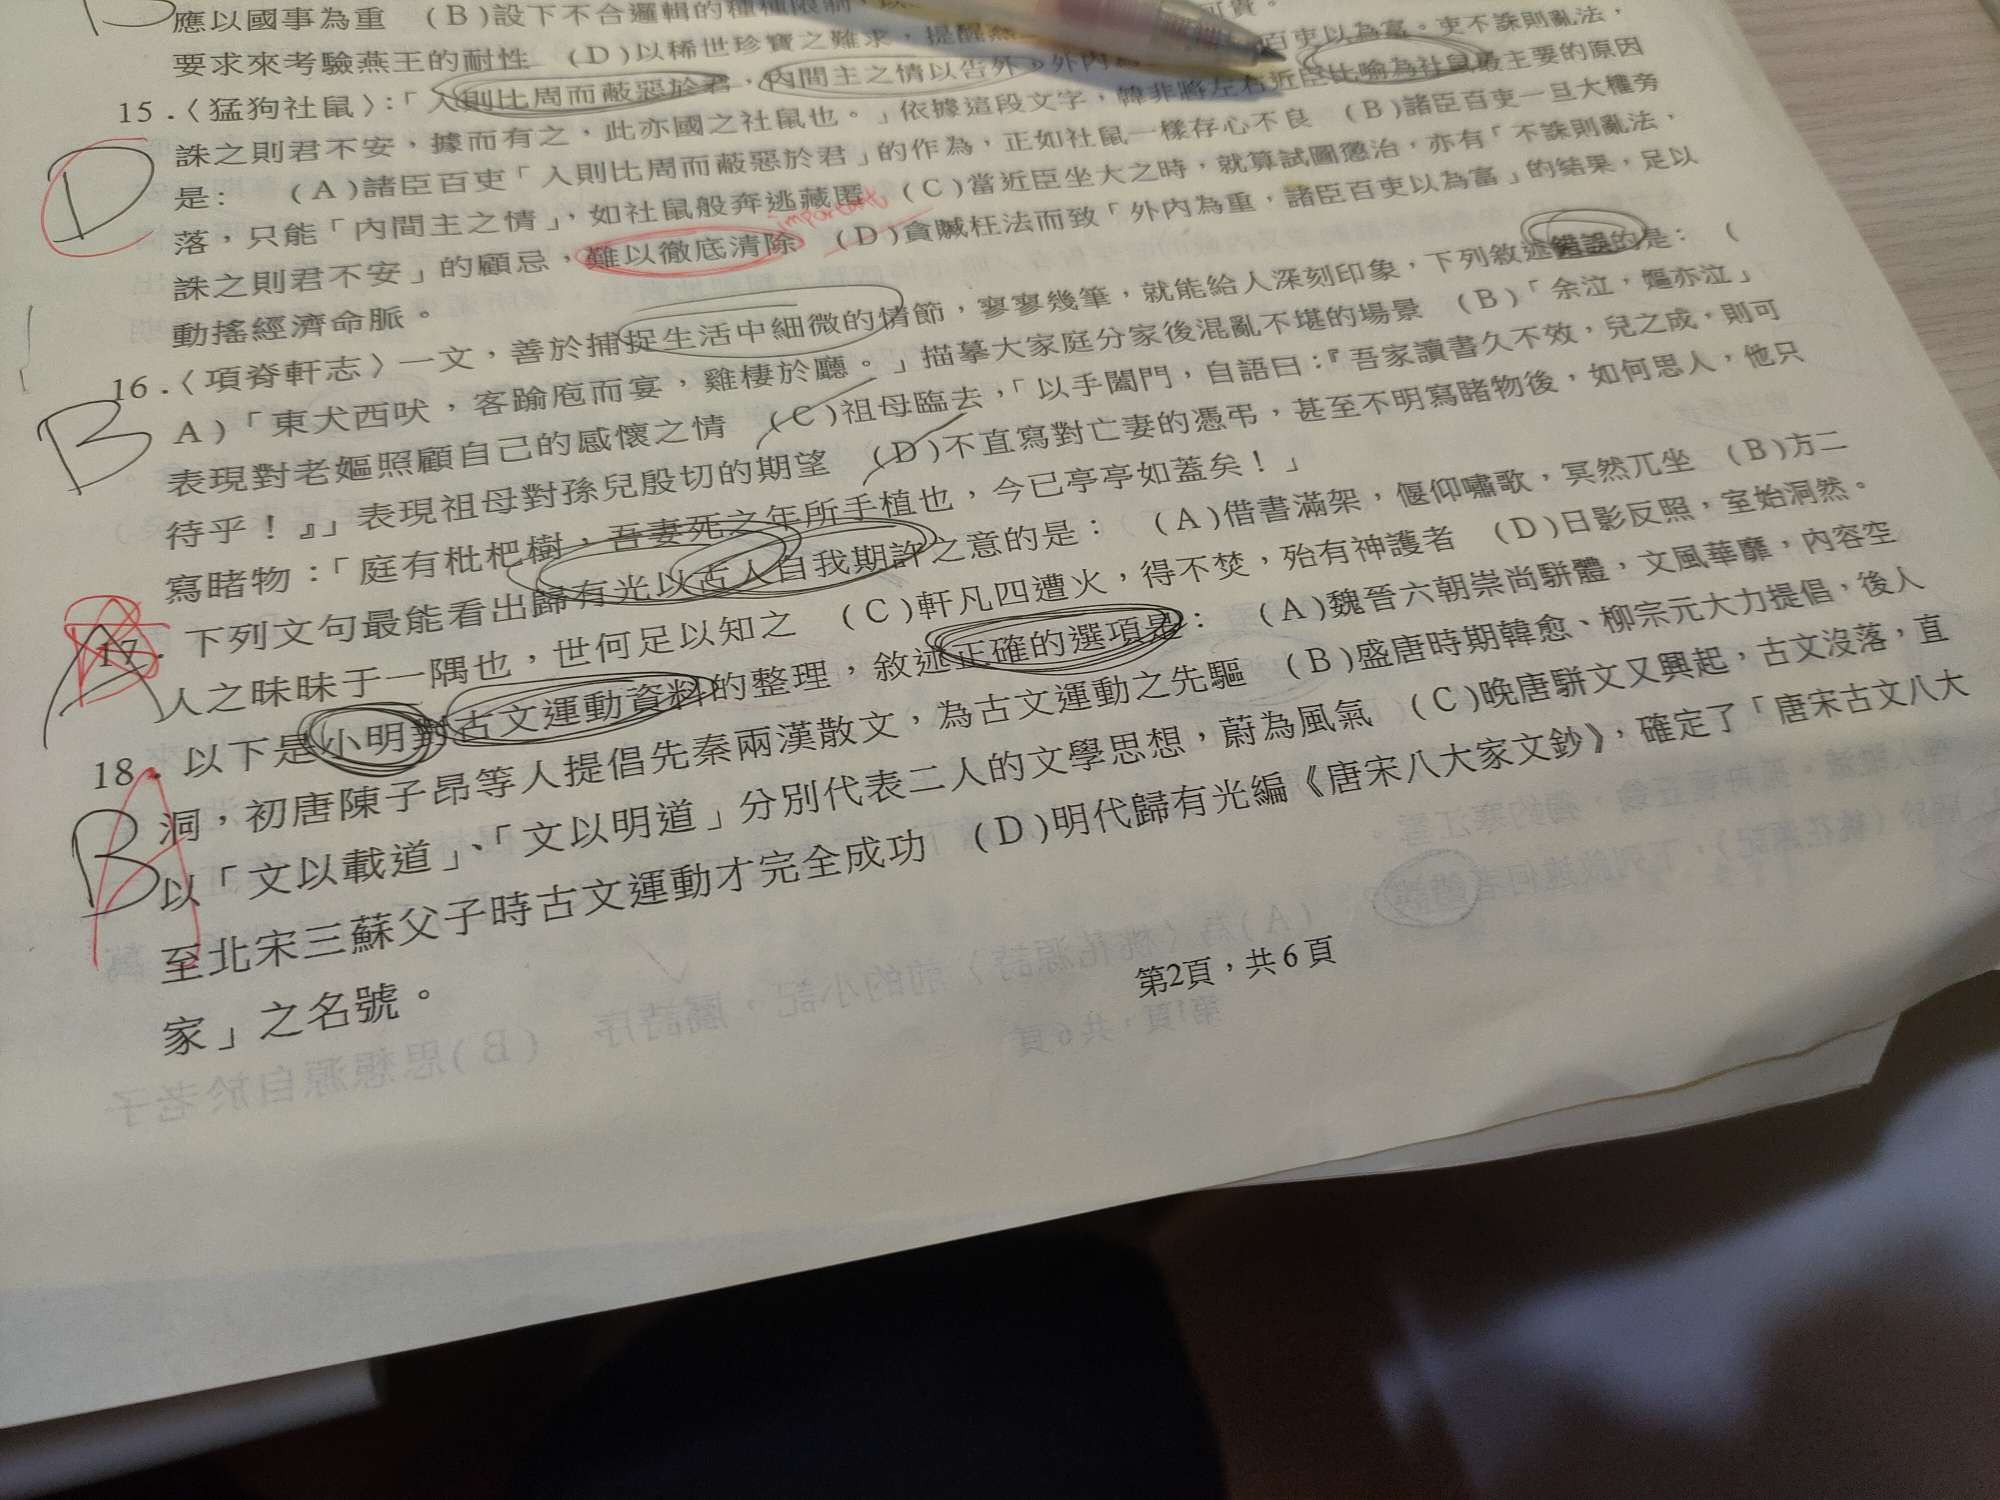 應以國事為重 (B)設下不合邏輯的種種限制，
要求來考驗燕王的耐性 (D)以稀世珍寶之難求，提醒燕 百吏以為富。吏不誅則亂法，
15.〈猛狗社鼠〉：「入則比周而蔽惡於君，內間主之情以告外，外內為
誅之則君不安，據而有之，此亦國之社鼠也。」依據這段文字，韓非將左右近臣比喻為社鼠最主要的原因
D
是： (A)諸臣百吏「入則比周而蔽惡於君」的作為，正如社鼠一樣存心不良 (B)諸臣百吏一旦大權旁
落，只能「內間主之情」，如社鼠般奔逃藏匿 (C)當近臣坐大之時，就算試圖懲治，亦有「不誅則亂法，
important
誅之則君不安」的顧忌，難以徹底清除 (D)貪贓枉法而致「外內為重，諸臣百吏以為富」的結果，足以
動搖經濟命脈。
16.〈項脊軒志〉一文，善於捕捉生活中細微的情節，寥寥幾筆，就能給人深刻印象，下列敘述錯誤的是： (
B
A)「東犬西吠，客踰庖而宴，雞棲於廳。」描摹大家庭分家後混亂不堪的場景 (B)「余泣，嫗亦泣」
表現對老嫗照顧自己的感懷之情 (C)祖母臨去，「以手闔門，自語曰：『吾家讀書久不效，兒之成，則可
待乎！』」表現祖母對孫兒殷切的期望 (D)不直寫對亡妻的憑弔，甚至不明寫睹物後，如何思人，他只
寫睹物：「庭有枇杷樹，吾妻死之年所手植也，今已亭亭如蓋矣！」
A
17. 下列文句最能看出歸有光以古人自我期許之意的是： (A)借書滿架，偃仰嘯歌，冥然兀坐 (B)方二
人之昧昧于一隅也，世何足以知之 (C)軒凡四遭火，得不焚，殆有神護者 (D)日影反照，室始洞然。
18. 以下是小明對古文運動資料的整理，敘述正確的選項是： (A)魏晉六朝崇尚駢體，文風華靡，內容空
B
A
洞，初唐陳子昂等人提倡先秦兩漢散文，為古文運動之先驅 (B)盛唐時期韓愈、柳宗元大力提倡，後人
以「文以載道」、「文以明道」分別代表二人的文學思想，蔚為風氣 (C)晚唐駢文又興起，古文沒落，直
至北宋三蘇父子時古文運動才完全成功 (D)明代歸有光編《唐宋八大家文鈔》，確定了「唐宋古文八大
家」之名號。
第2頁，共6頁